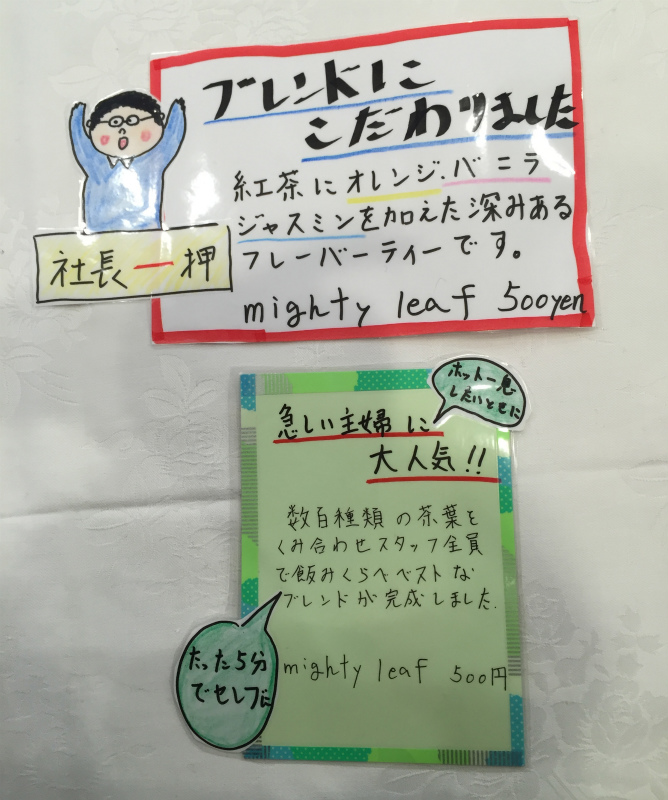 ブレンドに
こだわりました
紅茶にオレンジ.バニラ
ジャスミンを加えた深みある
フレーバーティーです。
mighty leaf 500yen
社長一押
ホット一息
したいときに
急しい主婦に
大人気!!
数百種類の茶葉を
くみ合わせスタッフ全員
で飲みくらべベストな
ブレンドが完成しました.
mighty leaf 500円
たった5分
でセレブに